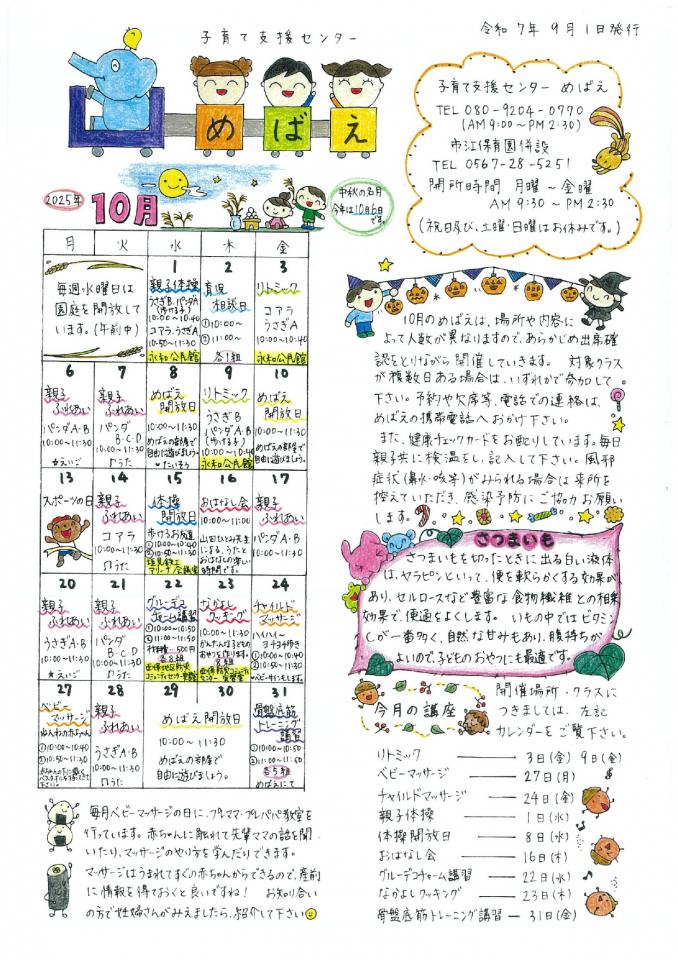 子育て支援センター
令和7年 9月1日発行
めばえ
子育て支援センター めばえ
TEL 080-9204-0770
(AM 9:00~PM 2:30)
市江保育園併設
TEL 0567-28-5251
開所時間 月曜~金曜
AM 9:30~PM 2:30
(祝日及び、土曜・日曜はお休みです。)
2025年
10月
中秋の名月
今年は10月6日
です。
月 火 水 木 金
毎週水曜日は
園庭を開放して
います。(午前中)
1
親子体操
うさぎB.パンダA
(歩ける子)
10:00~10:40
コアラ.うさぎA
10:50~11:30
永和公民館
2
育児
相談日
①10:00~
②11:00~
各1組
3
リトミック
コアラ
うさぎA
10:00~11:30
永和公民館
6
親子
ふれあい
パンダA・B
10:00~11:30
☆えいご
7
親子
ふれあい
パンダ
B・C・D
10:00~11:30
♫うた
8
めばえ
開放日
10:00~11:30
めばえの部屋で
自由に遊びましょう。
♥たいそう
9
リトミック
うさぎB
パンダA・B
(歩ける子)
10:00~10:40
永和公民館
10
めばえ
開放日
10:00~11:30
めばえの部屋で
自由に遊びましょう。
13
スポーツの日
14
親子
ふれあい
コアラ
10:00~11:30
♫うた
15
体操
開放日
歩けるお友達
①10:00~10:40
②10:50~11:30
アリーナ会議室
16
おはなし会
10:00~11:00
山田ひとみ先生
による、うたと
おはなしの楽しい
時間です。
17
親子
ふれあい
パンダA・B
10:00~11:30
20
親子
ふれあい
うさぎA・B
10:00~11:30
☆えいご
21
親子
ふれあい
パンダ
B・C・D
10:00~11:30
♫うた
22
グルーデコ
チャーム講習
①10:00~10:50
②10:50~11:30
材料費…500円
各8組
23
なかよし
クッキング
10:00~11:30
かんたんな子ども
のおやつを作ります。
8組
24
チャイルド
マッサージ
ハイハイ~
ヨチヨチ歩き
10:00~11:30
♥ベビーサインもします。
27
ベビー
マッサージ
ねんねの赤ちゃん
①10:00~10:40
②10:50~11:30
赤ちゃんの下に敷く
バスタオルをお持ち下さい
28
親子
ふれあい
うさぎA・B
10:00~11:30
♫うた
29 30
めばえ開放日
10:00~11:30
めばえの部屋で
自由に遊びましょう。
31
骨盤底筋
トレーニング
講習
①10:00~10:50
②10:50~11:50
各5組
めばえにて
10月のめばえは、場所や内容に
よって人数が異なりますので、あらかじめ出席確
認をとりながら開催していきます。 対象クラス
が複数日ある場合は、いずれかで参加して
下さい。予約や欠席等、電話での連絡は、
めばえの携帯電話へおかけ下さい。
また、健康チェックカードをお配りしています。毎日
親子共に検温をし、記入して下さい。風邪
症状(鼻水・咳等)がみられる場合は来所を
控えていただき、感染予防にご協力お願い
します。
さつまいも
さつまいもを切ったときに出る白い液体
は、ヤラピンといって、便を軟らかくする効果が
あり、セルロースなど豊富な食物繊維との相乗
効果で、便通をよくします。 いもの中ではビタミン
Cが一番多く、自然な甘みもあり、腹持ちが
よいので、子どものおやつにも最適です。
今月の講座
開催場所・クラスに
つきましては、左記
カレンダーをご覧下さい。
リトミック 3日(金) 9日(金)
ベビーマッサージ 27日(月)
チャイルドマッサージ 24日(金)
親子体操 1日(水)
体操開放日 8日(水)
おはなし会 16日(木)
グルーデコチャーム講習 22日(水)
なかよしクッキング 23日(木)
骨盤底筋トレーニング講習 31日(金)
毎月ベビーマッサージの日に、プレママ・プレパパ教室を
行っています。赤ちゃんに触れて先輩ママの話を聞
いたり、マッサージのやり方を学んだりできます。
マッサージはうまれてすぐの赤ちゃんからできるので、産前
に情報を得ておくと良いですね! お知り合い
の方で妊婦さんがみえましたら、紹介して下さい